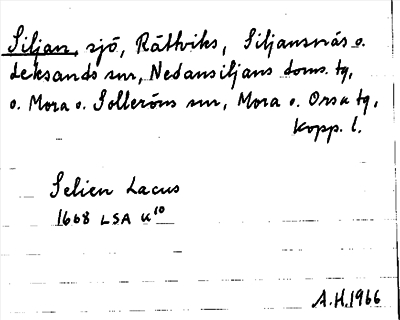 Siljan, sjö, Rättviks, Siljansnäs o.
Leksands snr, Nedansiljans doms. tg,
o. Mora o. Solleröns snr, Mora o. Orsa tg,
Kopp. l.
Selien Lacus
1668 LSA U¹⁰
A.H. 1966